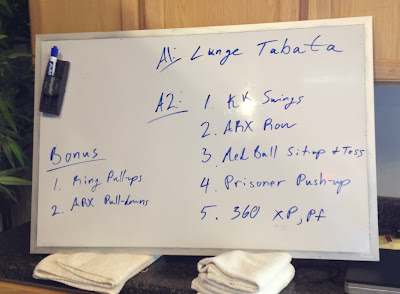 A1: Lunge Tabata
A2: 1. KK Swings
2. ARX Row
3. Med Ball Sit-up & Toss
4. Prisoner Push-up
5. 360 XP, PF
Bonus
1. Ring Pull-ups
2. ARX Pull-downs